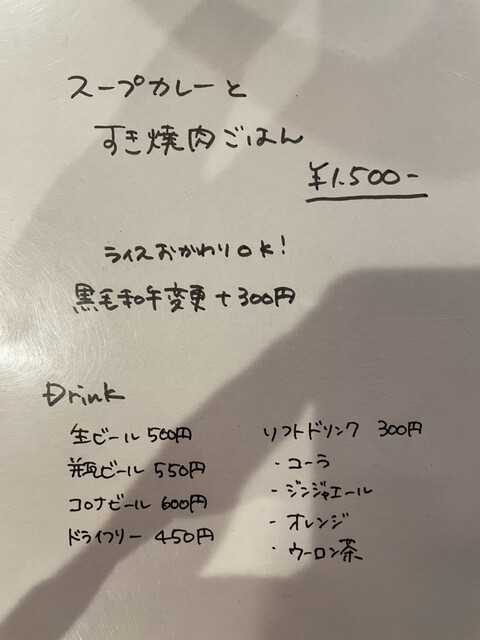 スープカレーと
すき焼肉ごはん
¥1.500-
ライスおかわりOK!
黒毛和牛変更 +300円
Drink
生ビール 500円
瓶ビール 550円
コロナビール 600円
ドライフリー 450円
ソフトドリンク 300円
・コーラ
・ジンジャエール
・オレンジ
・ウーロン茶